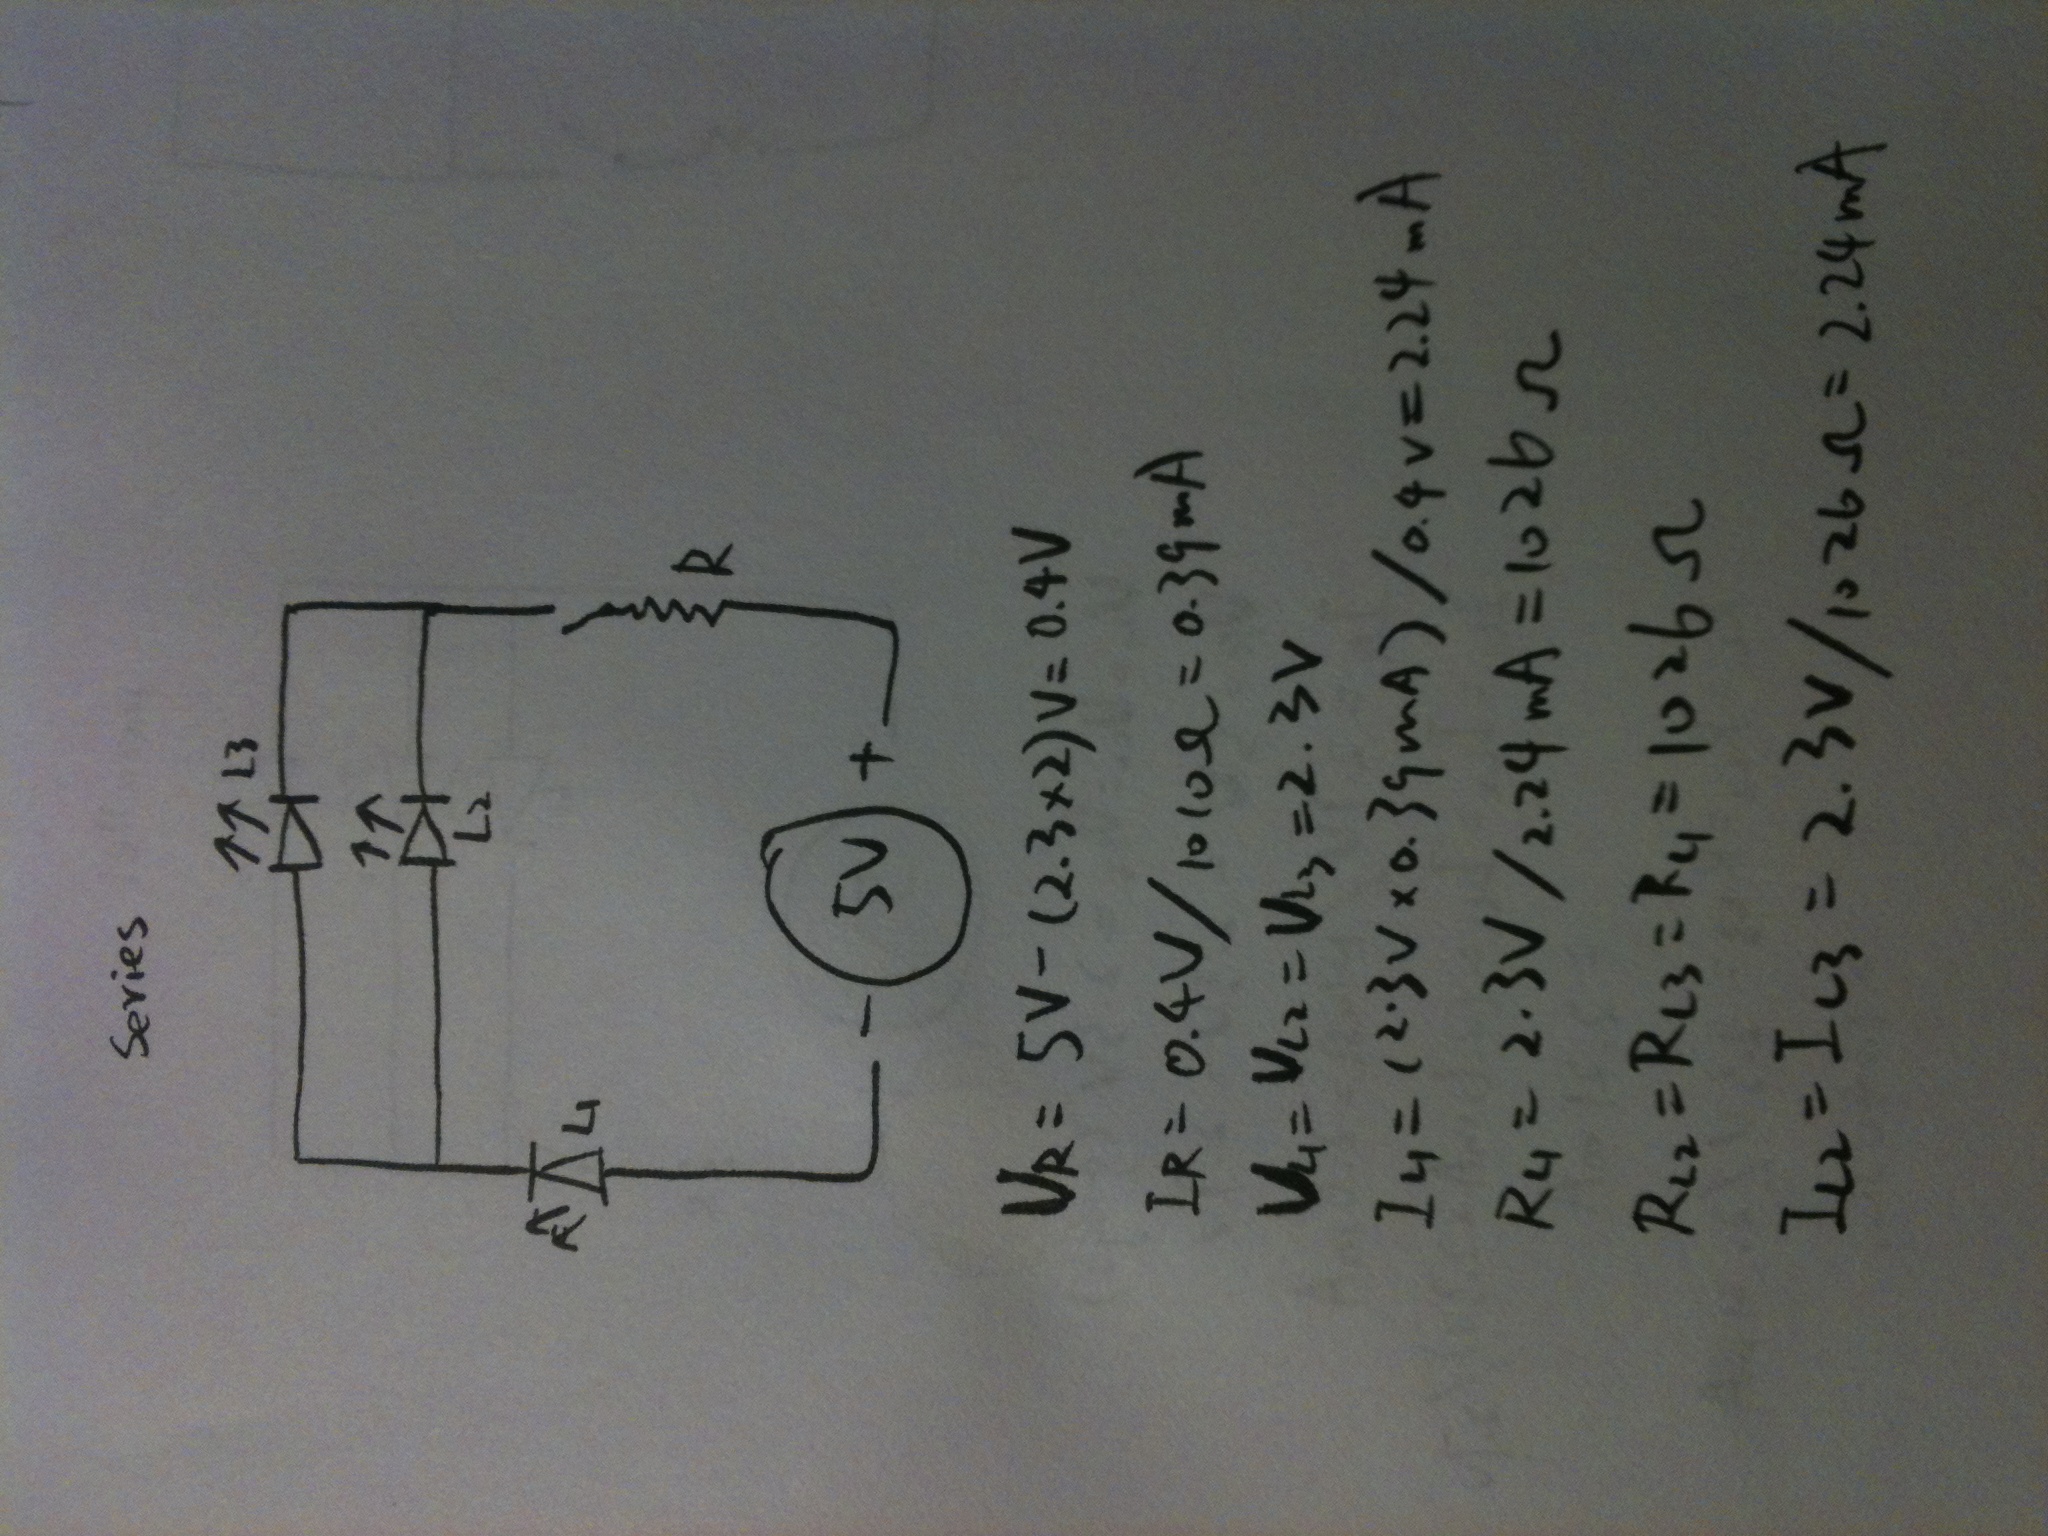 Series
L3
L2
L1
R
- 5V +
VR = 5V - (2.3×2)V = 0.4V
IR = 0.4V/1010Ω = 0.39mA
VL1 = VL2 = VL3 = 2.3V
IL1 = (2.3V × 0.39mA)/0.4V = 2.24mA
RL1 = 2.3V/2.24mA = 1026Ω
RL2 = RL3 = RL1 = 1026Ω
IL2 = IL3 = 2.3V/1026Ω = 2.24mA